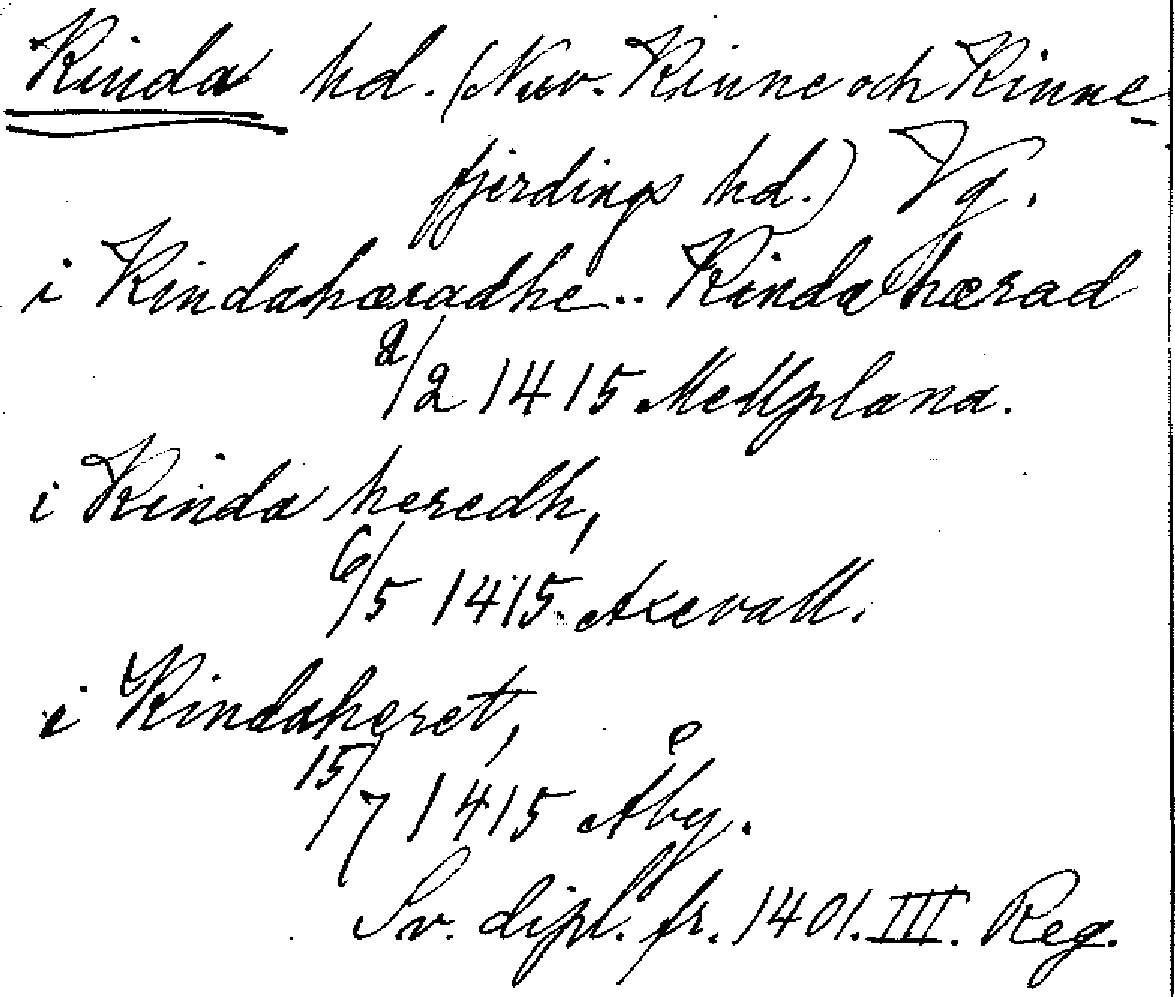 Kinda hd. (Nuv. Kinne och Kinne-
fjerdings hd.) Vg.
i Kindahæradhe .. Kinda hærad
2/2 1415 Medlplana.
i Kinda heredh,
6/5 1415 Axevall.
i Kindaheret,
15/7 1415 Åby.
Sv. dipl. fr. 1401. III. Reg.